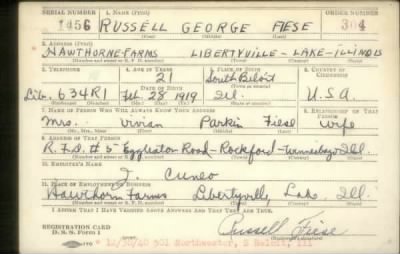 SERIAL NUMBER 1. NAME (Print) ORDER NUMBER
1456 RUSSELL GEORGE FIESE 304
(First) (Middle) (Last)
2. ADDRESS (Print)
HAWTHORNE FARMS LIBERTYVILLE - LAKE - ILLINOIS
(Number and street or R. F. D. number) (Town) (County) (State)
3. TELEPHONE 4. AGE IN YEARS 5. PLACE OF BIRTH 6. COUNTRY OF CITIZENSHIP
21 South Beloit
Lib. 634R1 DATE OF BIRTH Feb. 28 1919 Ill. U.S.A.
(Exchange) (Number) (Mo.) (Day) (Yr.) (State or country)
7. NAME OF PERSON WHO WILL ALWAYS KNOW YOUR ADDRESS 8. RELATIONSHIP OF THAT PERSON
Mrs. Vivian Parkin Fiese Wife
(Mr., Mrs., Miss) (First) (Middle) (Last)
9. ADDRESS OF THAT PERSON
R.F.D. #5 Eggleston Road - Rockford - Winnebago Ill.
(Number and street or R. F. D. number) (Town) (County) (State)
10. EMPLOYER'S NAME
J. Cuneo
11. PLACE OF EMPLOYMENT OR BUSINESS
Hawthorn Farms Libertyville, Lake, Ill.
(Number and street or R. F. D. number) (Town) (County) (State)
I AFFIRM THAT I HAVE VERIFIED ABOVE ANSWERS AND THAT THEY ARE TRUE.
REGISTRATION CARD
D. S. S. Form 1 Russell Fiese
(Registrant's signature)
* 12/30/40 501 Northwester, S Beloit, Ill